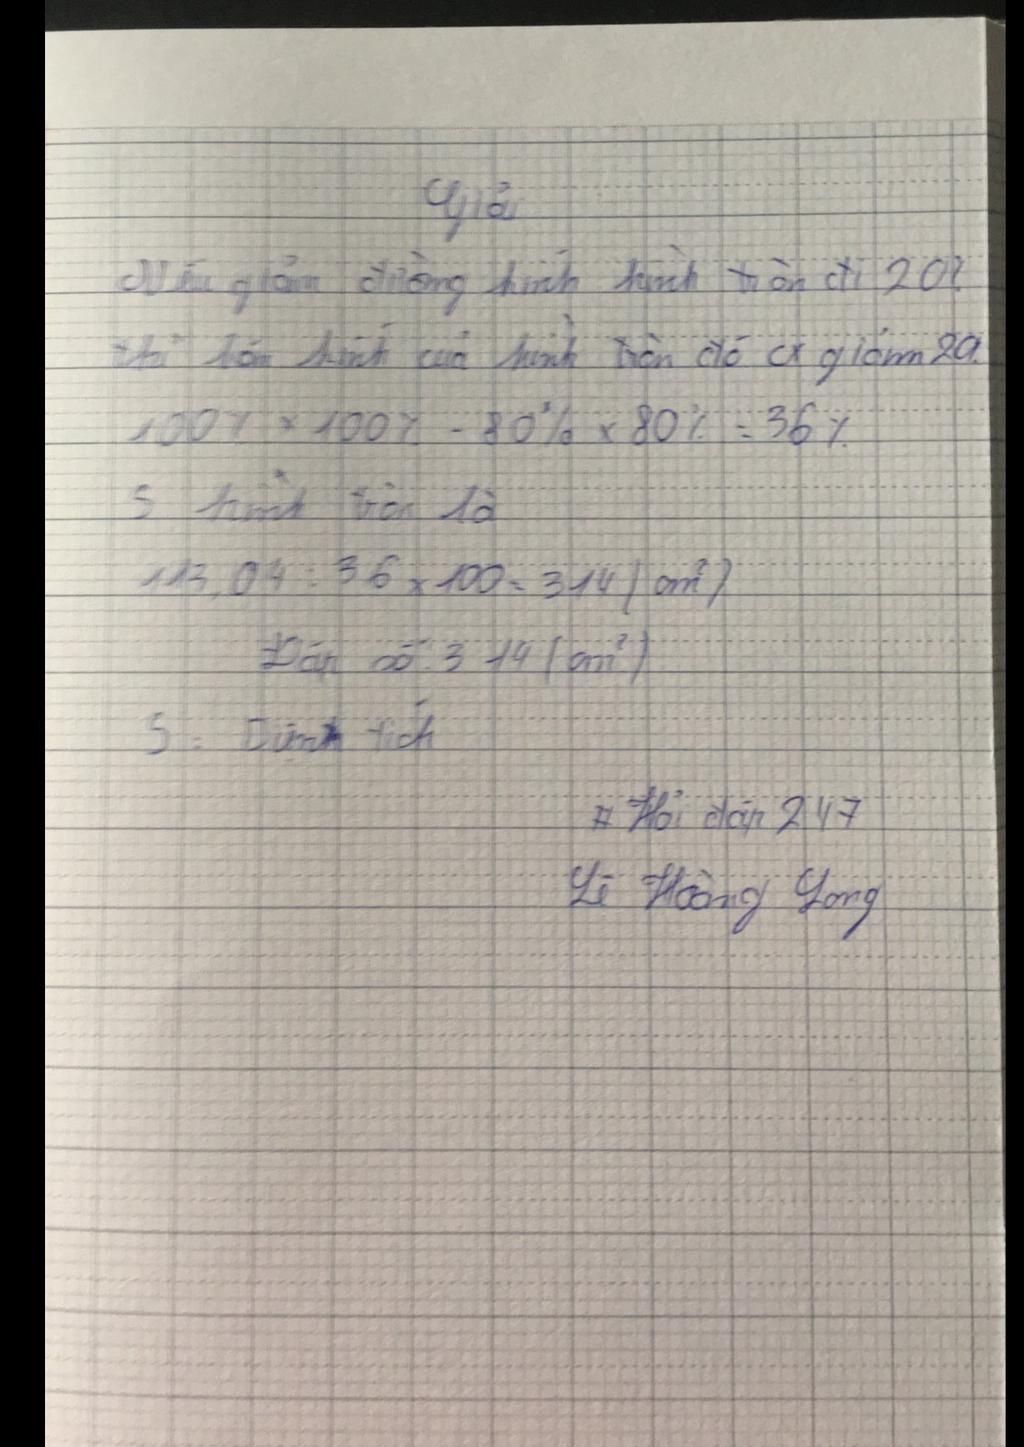 Giải
Nếu giảm đường kính hình tròn đi 20%
thì bán kính của hình tròn đó cx giảm 20
100% × 100% - 80% × 80% = 36%
S hình tròn là
113,04 : 36 × 100 = 314 (cm²)
Đáp số: 314 (cm²)
S = Diện tích
# Hỏi đáp 247
Lê Hoàng Long